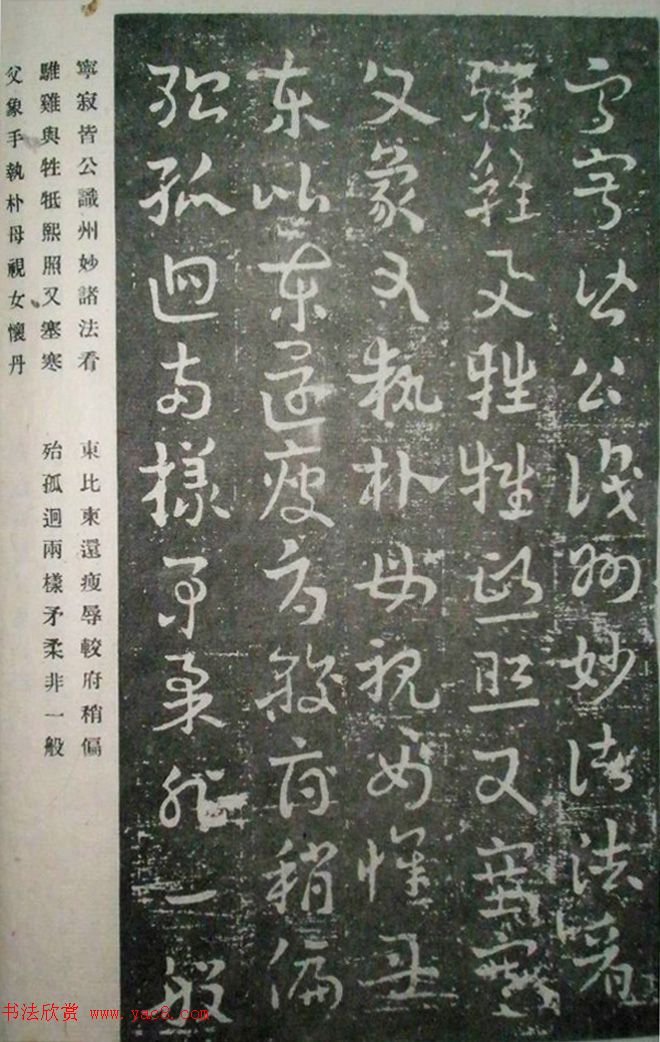 寧寂皆公識州妙諸法看
騅雞與牲牴熙照又塞寒
父象手執朴母視女懷丹
東比柬還瘦辱較府稍偏
殆孤迴兩樣矛柔非一般
书法欣赏 www.yac8.com